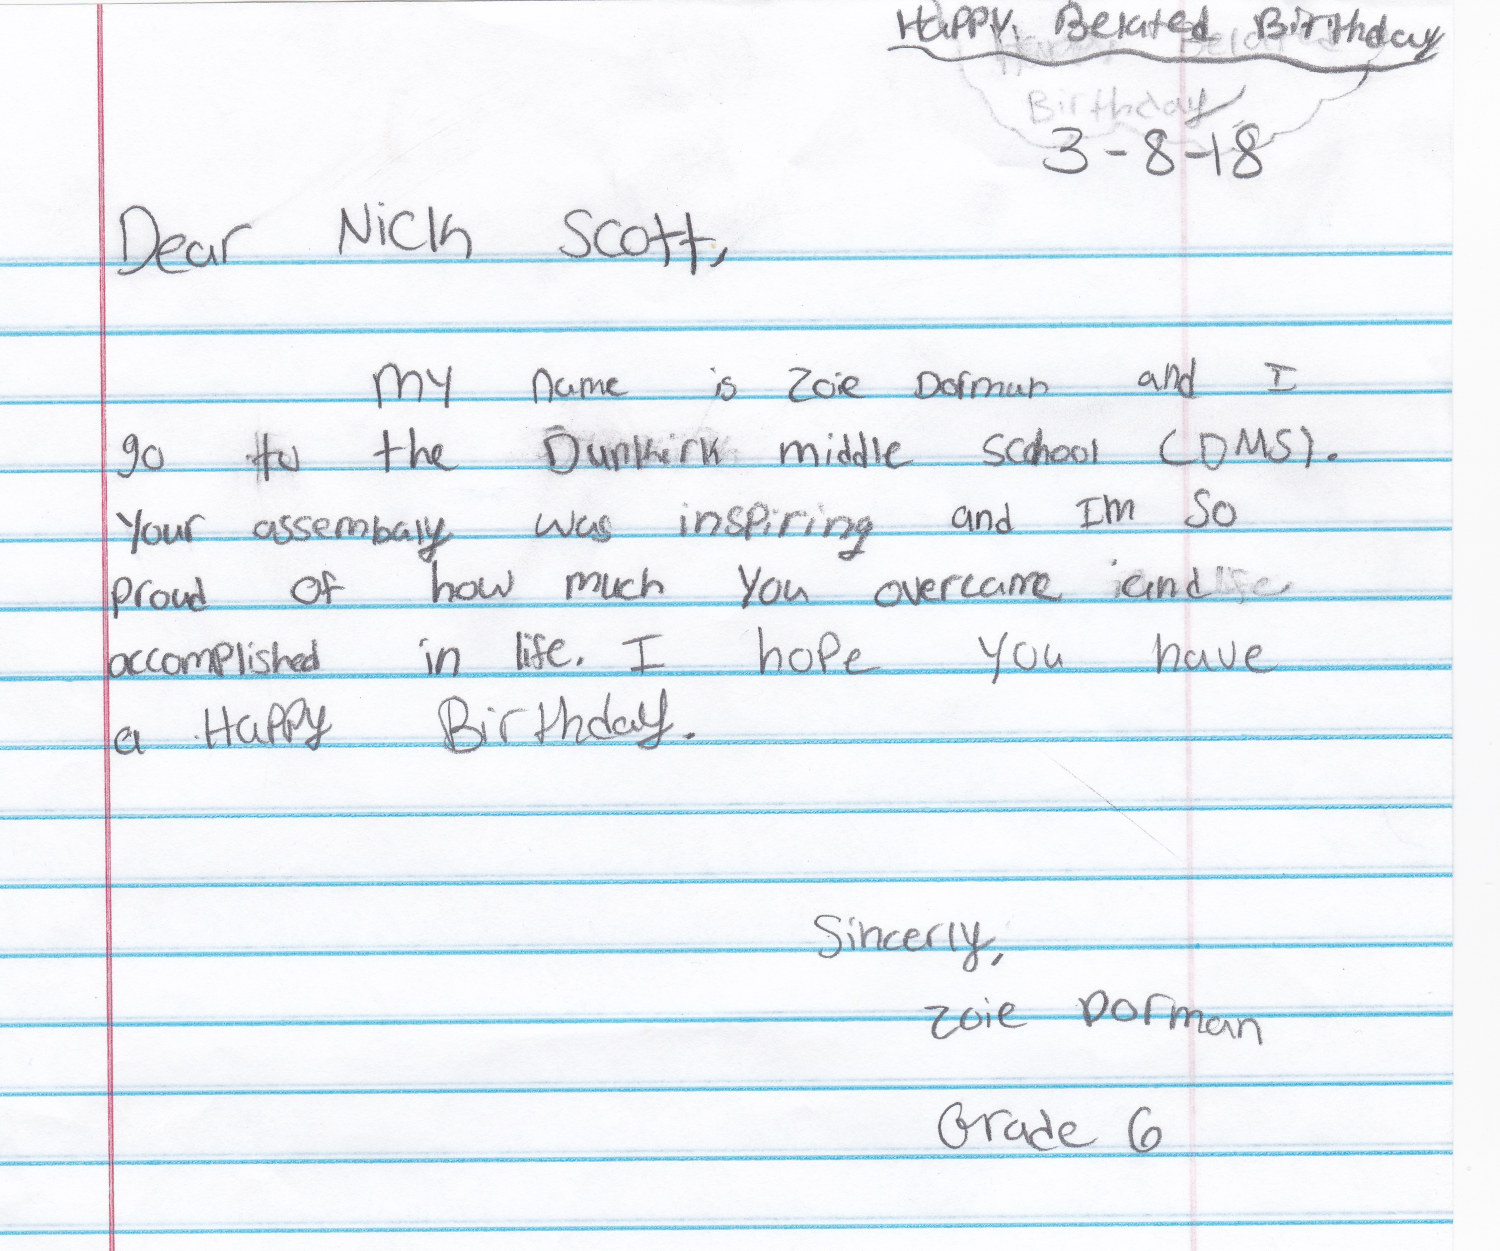 Happy Belated Birthday
Happy Belated
Birthday
3-8-18
Dear Nick Scott,
My name is Zoie Dorman and I
go to the Dunkirk middle scchool (DMS).
Your assembaly was inspiring and Im so
proud of how much you overcame and
accomplished in life. I hope you have
a Happy Birthday.
Sincerly,
Zoie Dorman
Grade 6